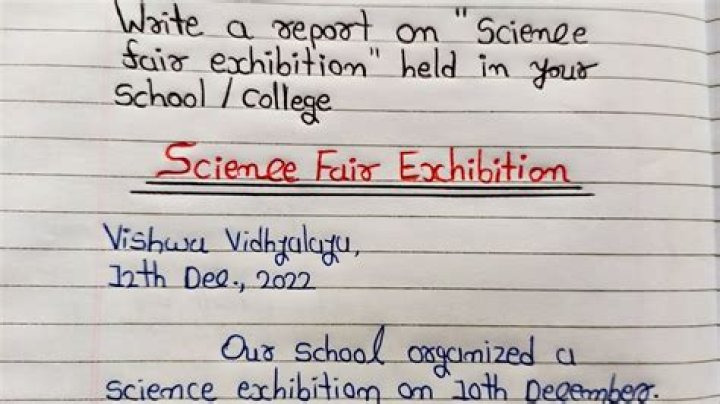 Write a report on "Science
fair exhibition" held in your
School / College
Science Fair Exhibition
Vishwa Vidhyalaya,
12th Dec., 2022
Our school organized a
science exhibition on 10th December.